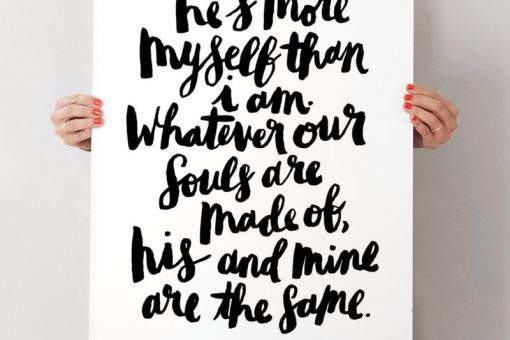 he's more
myself than
i am.
Whatever our
souls are
made of,
his and mine
are the same.